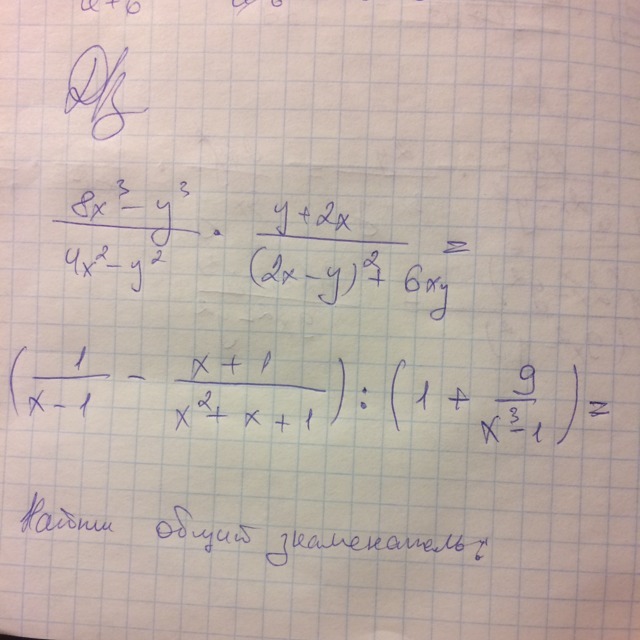 Д/з
8x³ - y³ / 4x² - y² · y + 2x / (2x - y)² + 6xy =
(1 / x - 1 - x + 1 / x² + x + 1) : (1 + 9 / x³ - 1) =
Найти общий знаменатель: